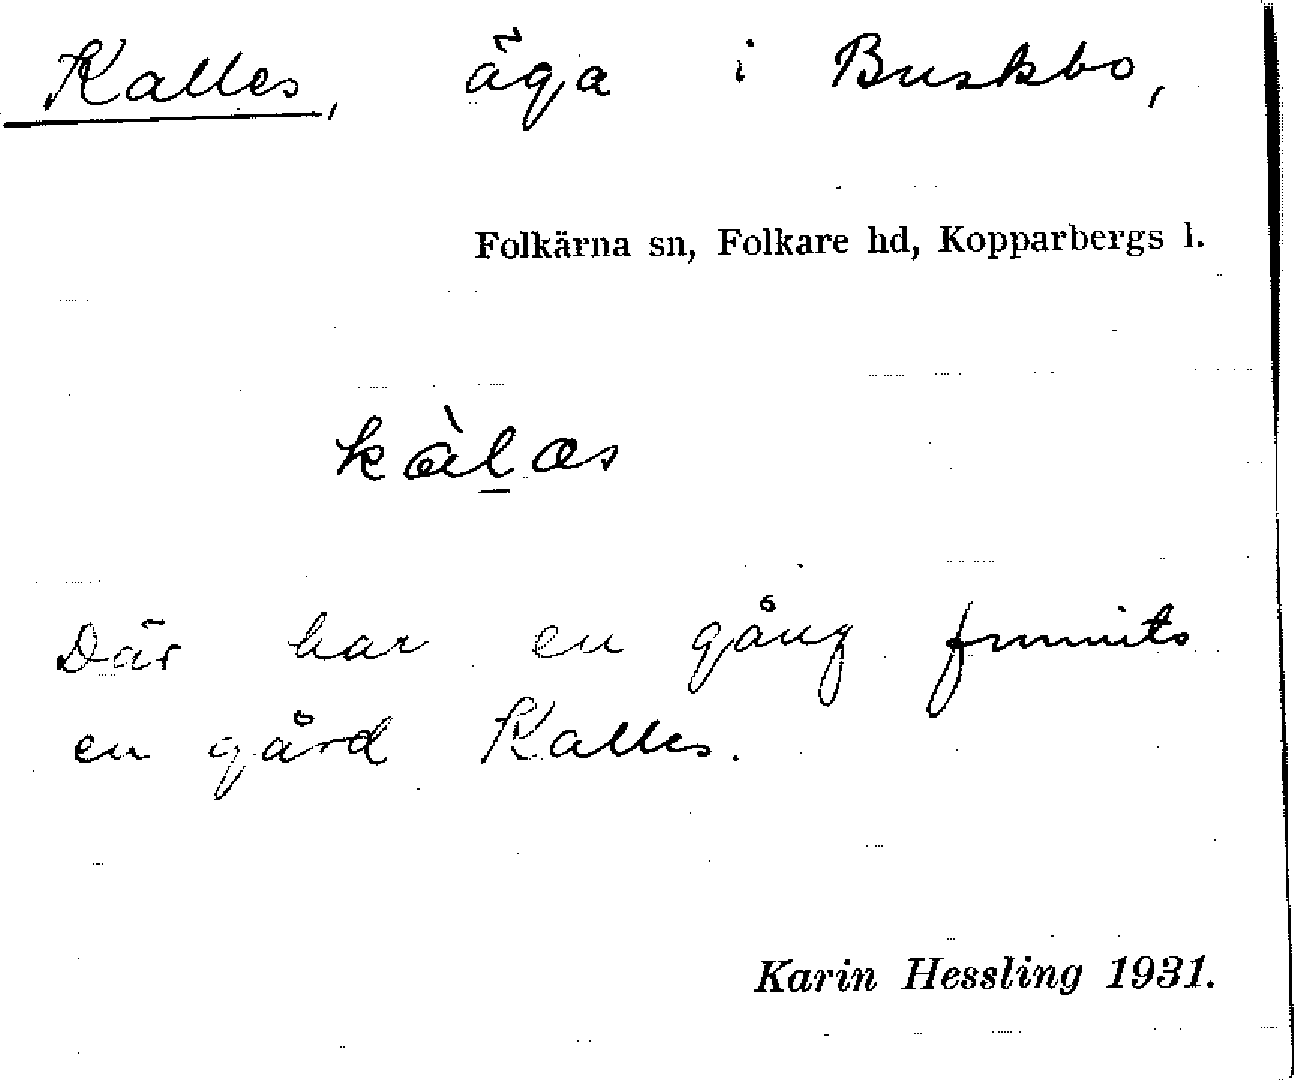 Kalles, äga i Buskbo,
Folkärna sn, Folkare hd, Kopparbergs l.
kàl̲as
Där har en gång funnits
en gård Kalles.
Karin Hessling 1931.